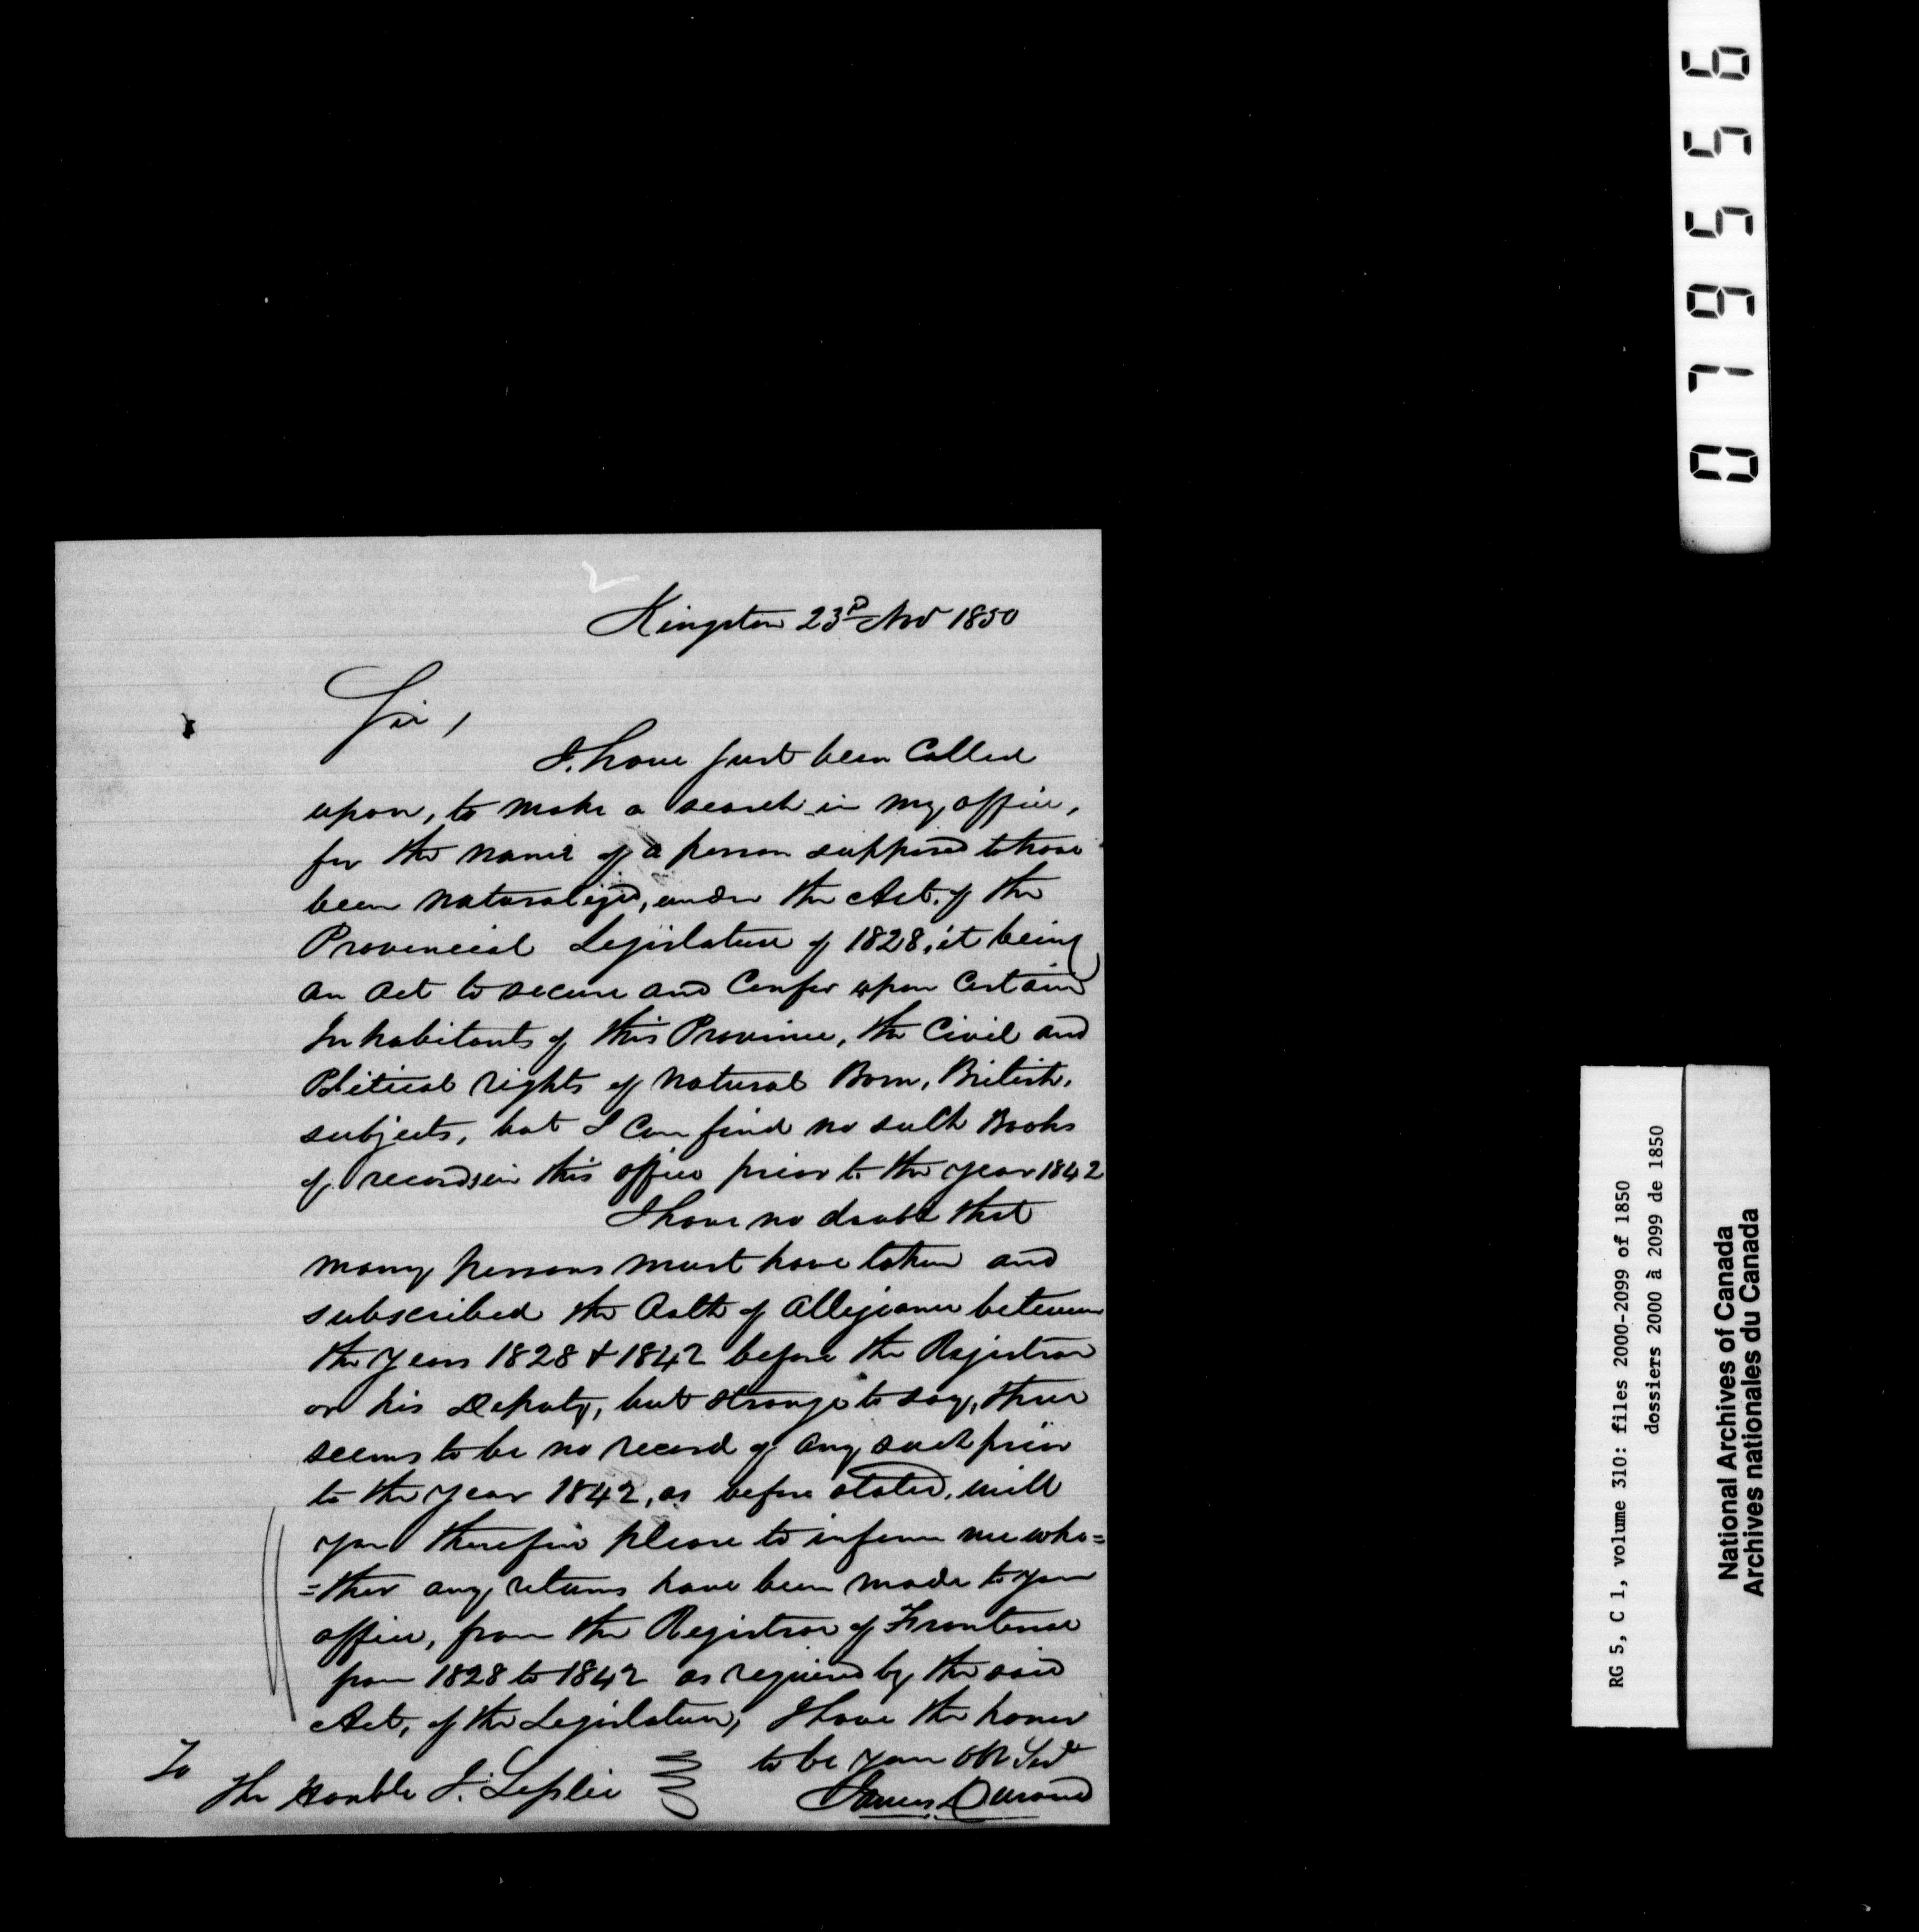 Kingston 23rd Nov 1850
Sir,
I have just been Called
upon, to make a search in my office,
for the name of a person supposed to have
been naturalized, under the Act of the
Provincial Legislature of 1828, it being
an act to secure and Confer upon Certain
Inhabitants of this Province, the Civil and
Political rights of Natural Born, British,
subjects, but I Can find no such Books
of records in this office prior to the year 1842
I have no doubt that
many persons must have taken and
subscribed the Oath of Allegiance between
the years 1828 & 1842 before the Registrar
or his Deputy, but strange to say, there
seems to be no record of any such prior
to the year 1842, as before stated, will
you therefore please to inform me whe=
=ther any returns have been made to your
office, from the Registrar of Frontenac
from 1828 to 1842 as required by the said
Act, of the Legislature, I have the honor
to be your Obt Servt
James Durand
To
The Honble J. Leslie
079556
RG 5, C 1, volume 310: files 2000-2099 of 1850
dossiers 2000 à 2099 de 1850
National Archives of Canada
Archives nationales du Canada